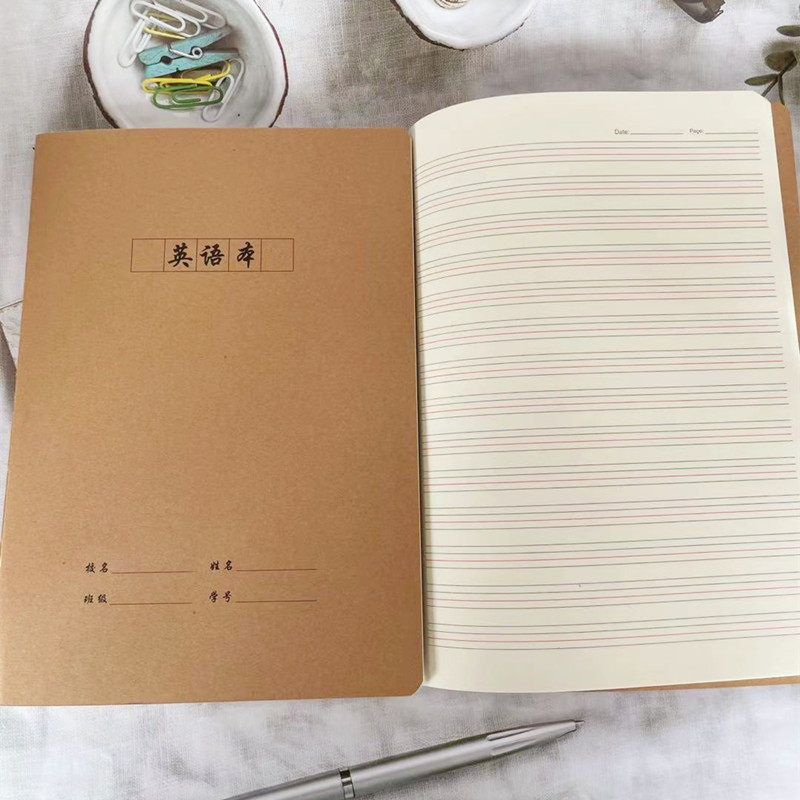 英语本
校名 姓名
班级 学号
Date: Page: